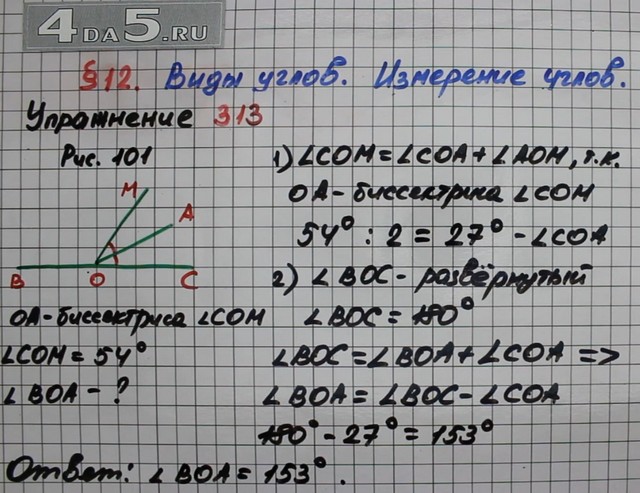 4DA5.RU
§12. Виды углов. Измерение углов.
Упражнение 313
Рис. 101
M
A
B
O
C
OA-биссектриса ∠COM
∠COM = 54°
∠BOA - ?
1) ∠COM = ∠COA + ∠AOM, т.к.
OA-биссектрина ∠COM
54° : 2 = 27° - ∠COA
2) ∠BOC - развёрнутый
∠BOC = 180°
∠BOC = ∠BOA + ∠COA =>
∠BOA = ∠BOC - ∠COA
180° - 27° = 153°
Ответ: ∠BOA = 153°.